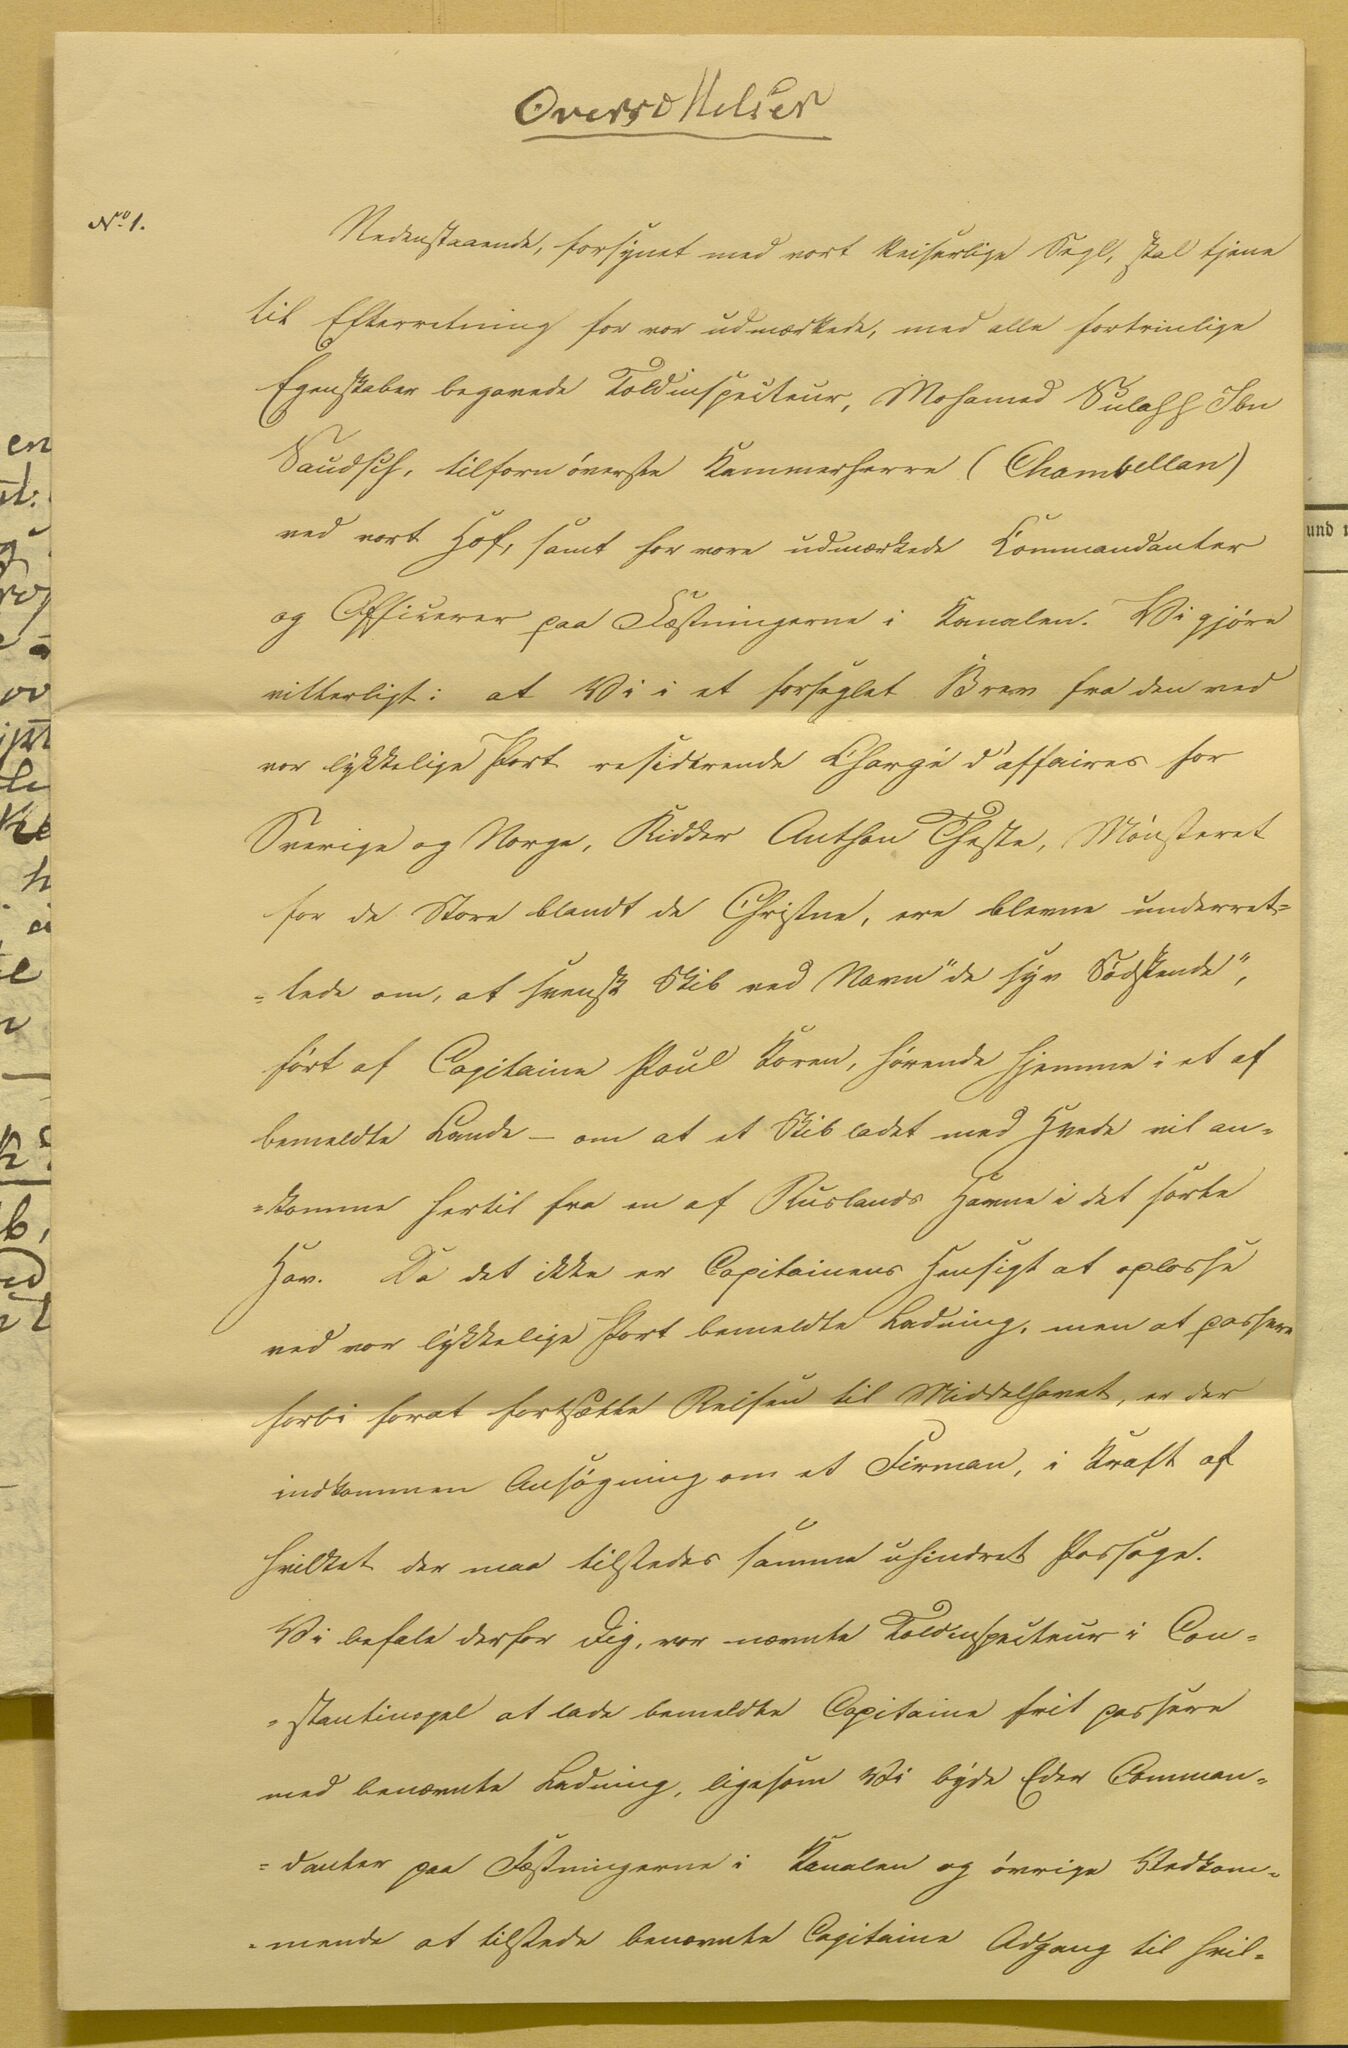 Oversættelser
No 1.
Nedenstaaende, forsynet med vort keiserlige Segl, skal tjene
til Efterretning for vor udmærkede, med alle fortrinlige
Egenskaber begavede Toldinspecteur, Mohamed Sulahh Ibn
tilforn överste Kammerherre (Chambellan)
ved vort Hof, samt for vore udmærkede Commandanter
og Officerer paa Fæstningerne i Kanalen. Vi gjöre
vitterligt: at Vi i et forseglet Brev fra den ved
vor lykkelige Port residerende Chargé d'affaires for
Sverige og Norge, Ridder Anthon Theste, Mönsteret
for de Store blandt de Christne, ere blevne underret=
=tede om, at svensk Skib ved Navn "de syv Södskende",
fört af Capitaine Poul Koren, hörende hjemme i et af
bemeldte Lande – om at et Skib ladet med Hvede vil an=
=komme hertil fra en af Ruslands Havne i det sorte
Hav. Da det ikke er Capitainens Hensigt at oplosse
ved vor lykkelige Port bemeldte Ladning, men at passere
forbi forat fortsætte Reisen til Middelhavet, er der
indkommen Ansögning om et Firman, i Kraft af
hvilket der maa tilstedes samme uhindret Passage.
Vi befale derfor Dig, vor nævnte Toldinspecteur i Con=
=stantinopel at lade bemeldte Capitaine frit passere
med benævnte Ladning, ligesom Vi byde Eder Comman=
=danter paa Fæstningerne i Kanalen og övrige Vedkom=
=mende at tilstede benævnte Capitaine Adgang til hvil=
en
und